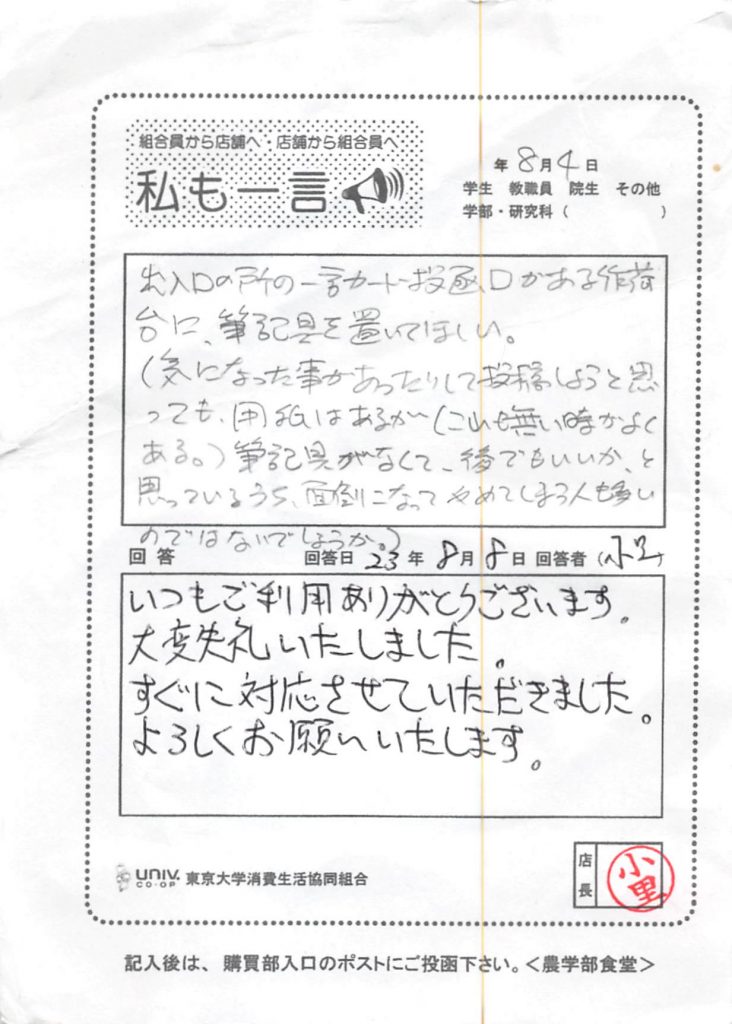 組合員から店舗へ・店舗から組合員へ
私も一言
年 8月4日
学生 教職員 院生 その他
学部・研究科( )
出入口の所の一言カード投函口がある作荷
台に、筆記具を置いてほしい。
(気になった事があったりして投稿しようと思
っても、用紙はあるが(これも無い時がよく
ある。)筆記具がなくて、後でもいいか、と
思っているうち、面倒になってやめてしまう人も多い
のではないでしょうか。)
回答 回答日 23年 8月 8日 回答者 (小里)
いつもご利用ありがとうございます。
大変失礼いたしました。
すぐに対応させていただきました。
よろしくお願いいたします。
店長 小里
UNIV. CO-OP 東京大学消費生活協同組合
記入後は、購買部入口のポストにご投函下さい。<農学部食堂>